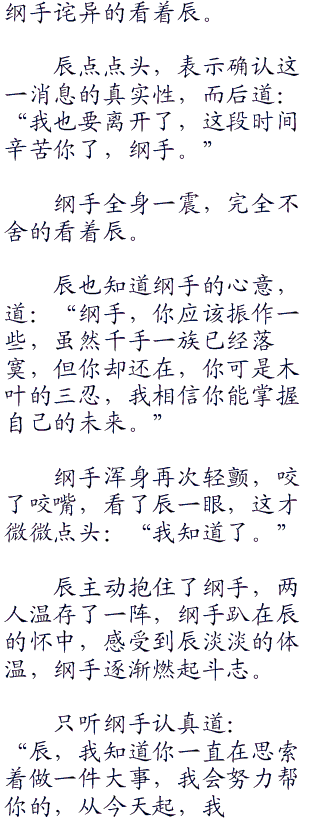 纲手诧异的看着辰。
辰点点头，表示确认这
一消息的真实性，而后道：
“我也要离开了，这段时间
辛苦你了，纲手。”
纲手全身一震，完全不
舍的看着辰。
辰也知道纲手的心意，
道：“纲手，你应该振作一
些，虽然千手一族已经落
寞，但你却还在，你可是木
叶的三忍，我相信你能掌握
自己的未来。”
纲手浑身再次轻颤，咬
了咬嘴，看了辰一眼，这才
微微点头：“我知道了。”
辰主动抱住了纲手，两
人温存了一阵，纲手趴在辰
的怀中，感受到辰淡淡的体
温，纲手逐渐燃起斗志。
只听纲手认真道：
“辰，我知道你一直在思索
着做一件大事，我会努力帮
你的，从今天起，我